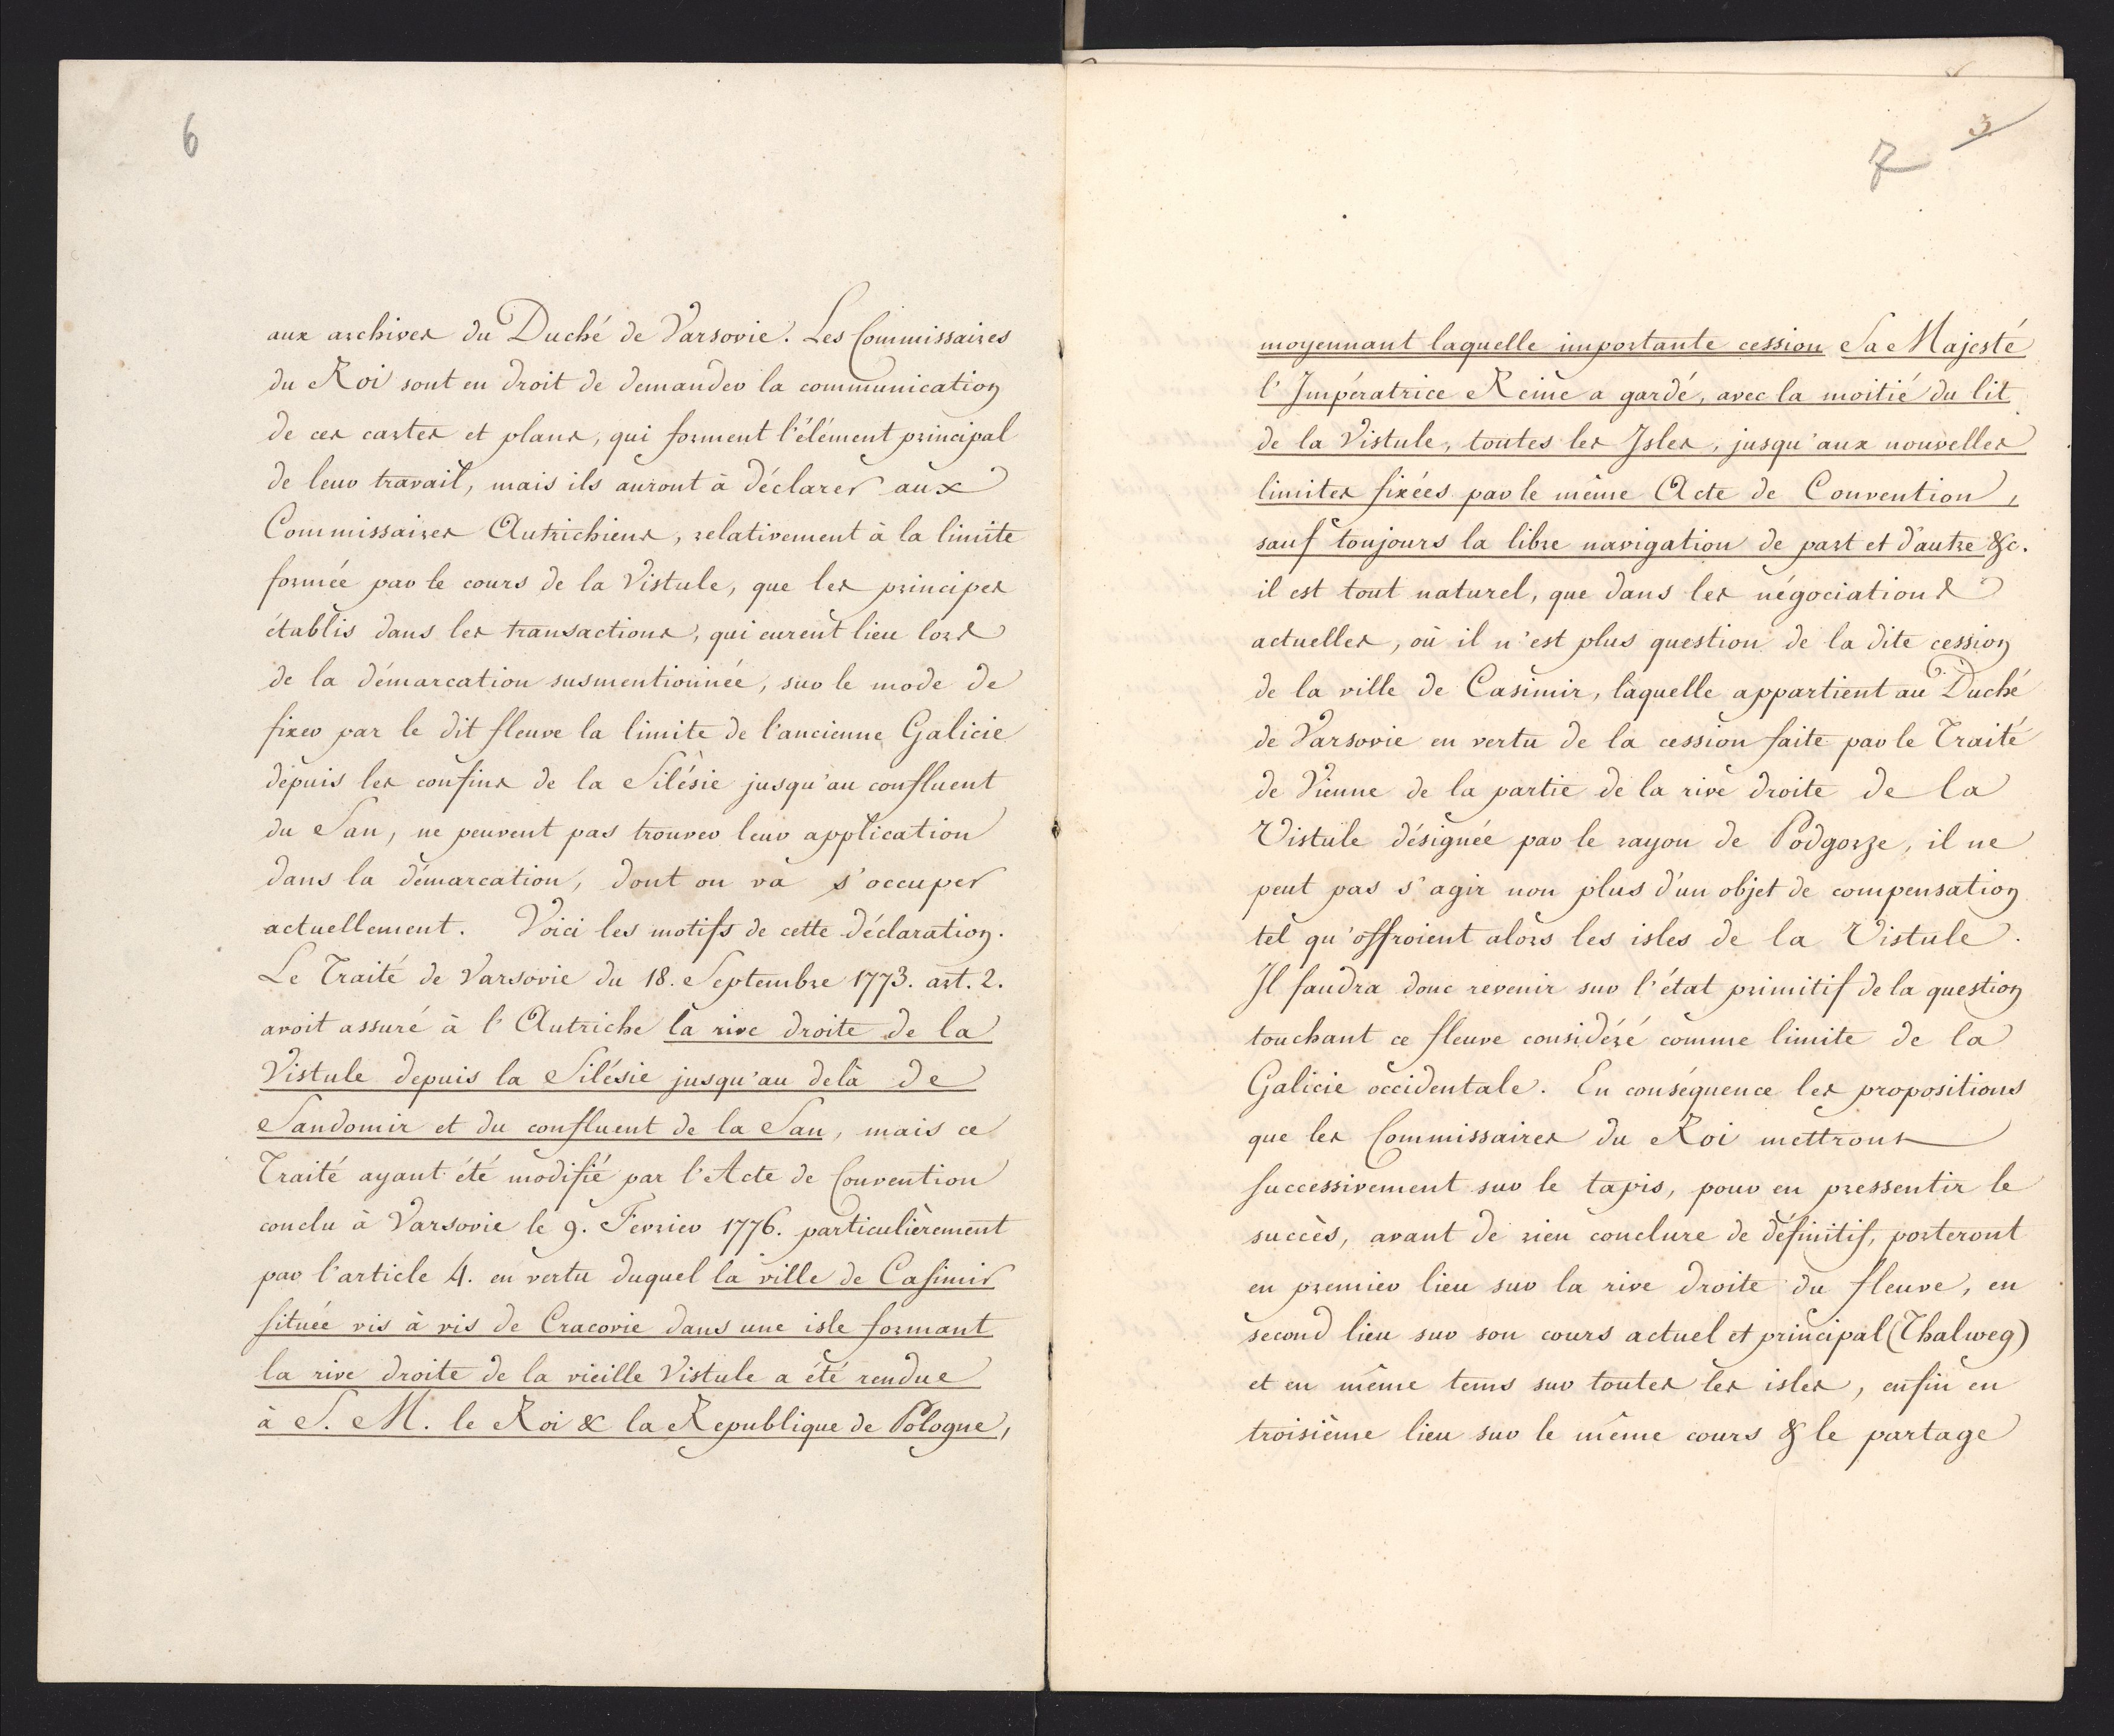 6
aux archives du Duché de Varsovie. Les Commissaires
du Roi sont en droit de demander la communication
de ces cartes et plans, qui forment l'élément principal
de leur travail, mais ils auront à déclarer aux
Commissaires Autrichiens, relativement à la limite
formée par le cours de la Vistule, que les principes
établis dans les transactions, qui eurent lieu lors
de la démarcation susmentionnée, sur le mode de
fixer par le dit fleuve la limite de l'ancienne Galicie
depuis les confins de la Silésie jusqu'au confluent
du San, ne peuvent pas trouver leur application
dans la démarcation, dont on va s'occuper
actuellement. Voici les motifs de cette déclaration.
Le Traité de Varsovie du 18. Septembre 1773. art. 2.
avoit assuré à l'Autriche la rive droite de la
Vistule depuis la Silésie jusqu'au delà de
Sandomir et du confluent de la San, mais ce
Traité ayant été modifié par l'Acte de Convention
conclu à Varsovie le 9. Fevrier 1776. particulièrement
par l'article 4. en vertu duquel la ville de Casimir
située vis à vis de Cracovie dans une isle formant
la rive droite de la vieille Vistule a été rendue
à S. M. le Roi & la Republique de Pologne,
3
7
moyennant laquelle importante cession Sa Majesté
l'Impératrice Reine a gardé, avec la moitié du lit
de la Vistule, toutes les Isles, jusqu'aux nouvelles
limites fixées par le même Acte de Convention,
sauf toujours la libre navigation de part et d'autre &c.
il est tout naturel, que dans les négociations
actuelles, où il n'est plus question de la dite cession
de la ville de Casimir, laquelle appartient au Duché
de Varsovie en vertu de la cession faite par le Traité
de Vienne de la partie de la rive droite de la
Vistule désignée par le rayon de Podgorze, il ne
peut pas s'agir non plus d'un objet de compensation
tel qu'offroient alors les isles de la Vistule.
Il faudra donc revenir sur l'état primitif de la question
touchant ce fleuve considéré comme limite de la
Galicie occidentale. En conséquence les propositions
que les Commissaires du Roi mettront
successivement sur le tapis, pour en pressentir le
succès, avant de rien conclure de définitif, porteront
en premier lieu sur la rive droite du fleuve, en
second lieu sur son cours actuel et principal (Thalweg)
et en même tems sur toutes les isles, enfin en
troisième lieu sur le même cours & le partage